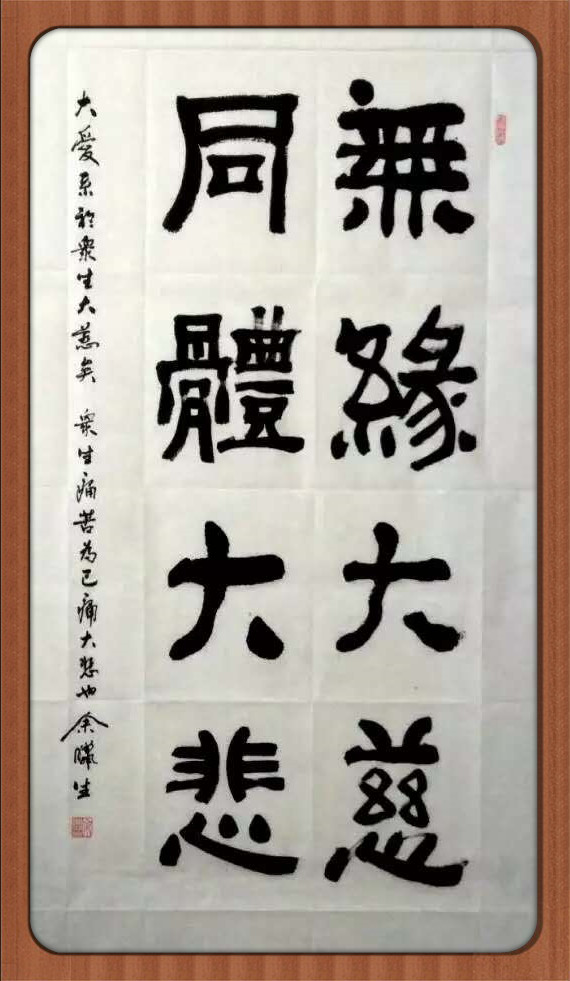 無緣大慈
同體大悲
大愛系於衆生大慈矣 衆生痛苦為己痛大悲也 余曦生